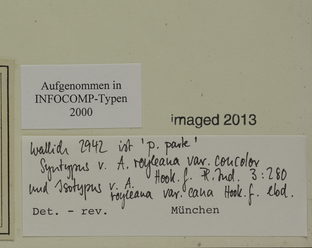 Aufgenommen in
INFOCOMP-Typen
2000
imaged 2013
Wallich 2942 ist 'p. parte'
Syntypus v. A. royleana var. concolor
Hook. f. Fl. Ind. 3:280
und Isotypus v. A.
royleana var. cana Hook. f. ebd.
Det. - rev. München